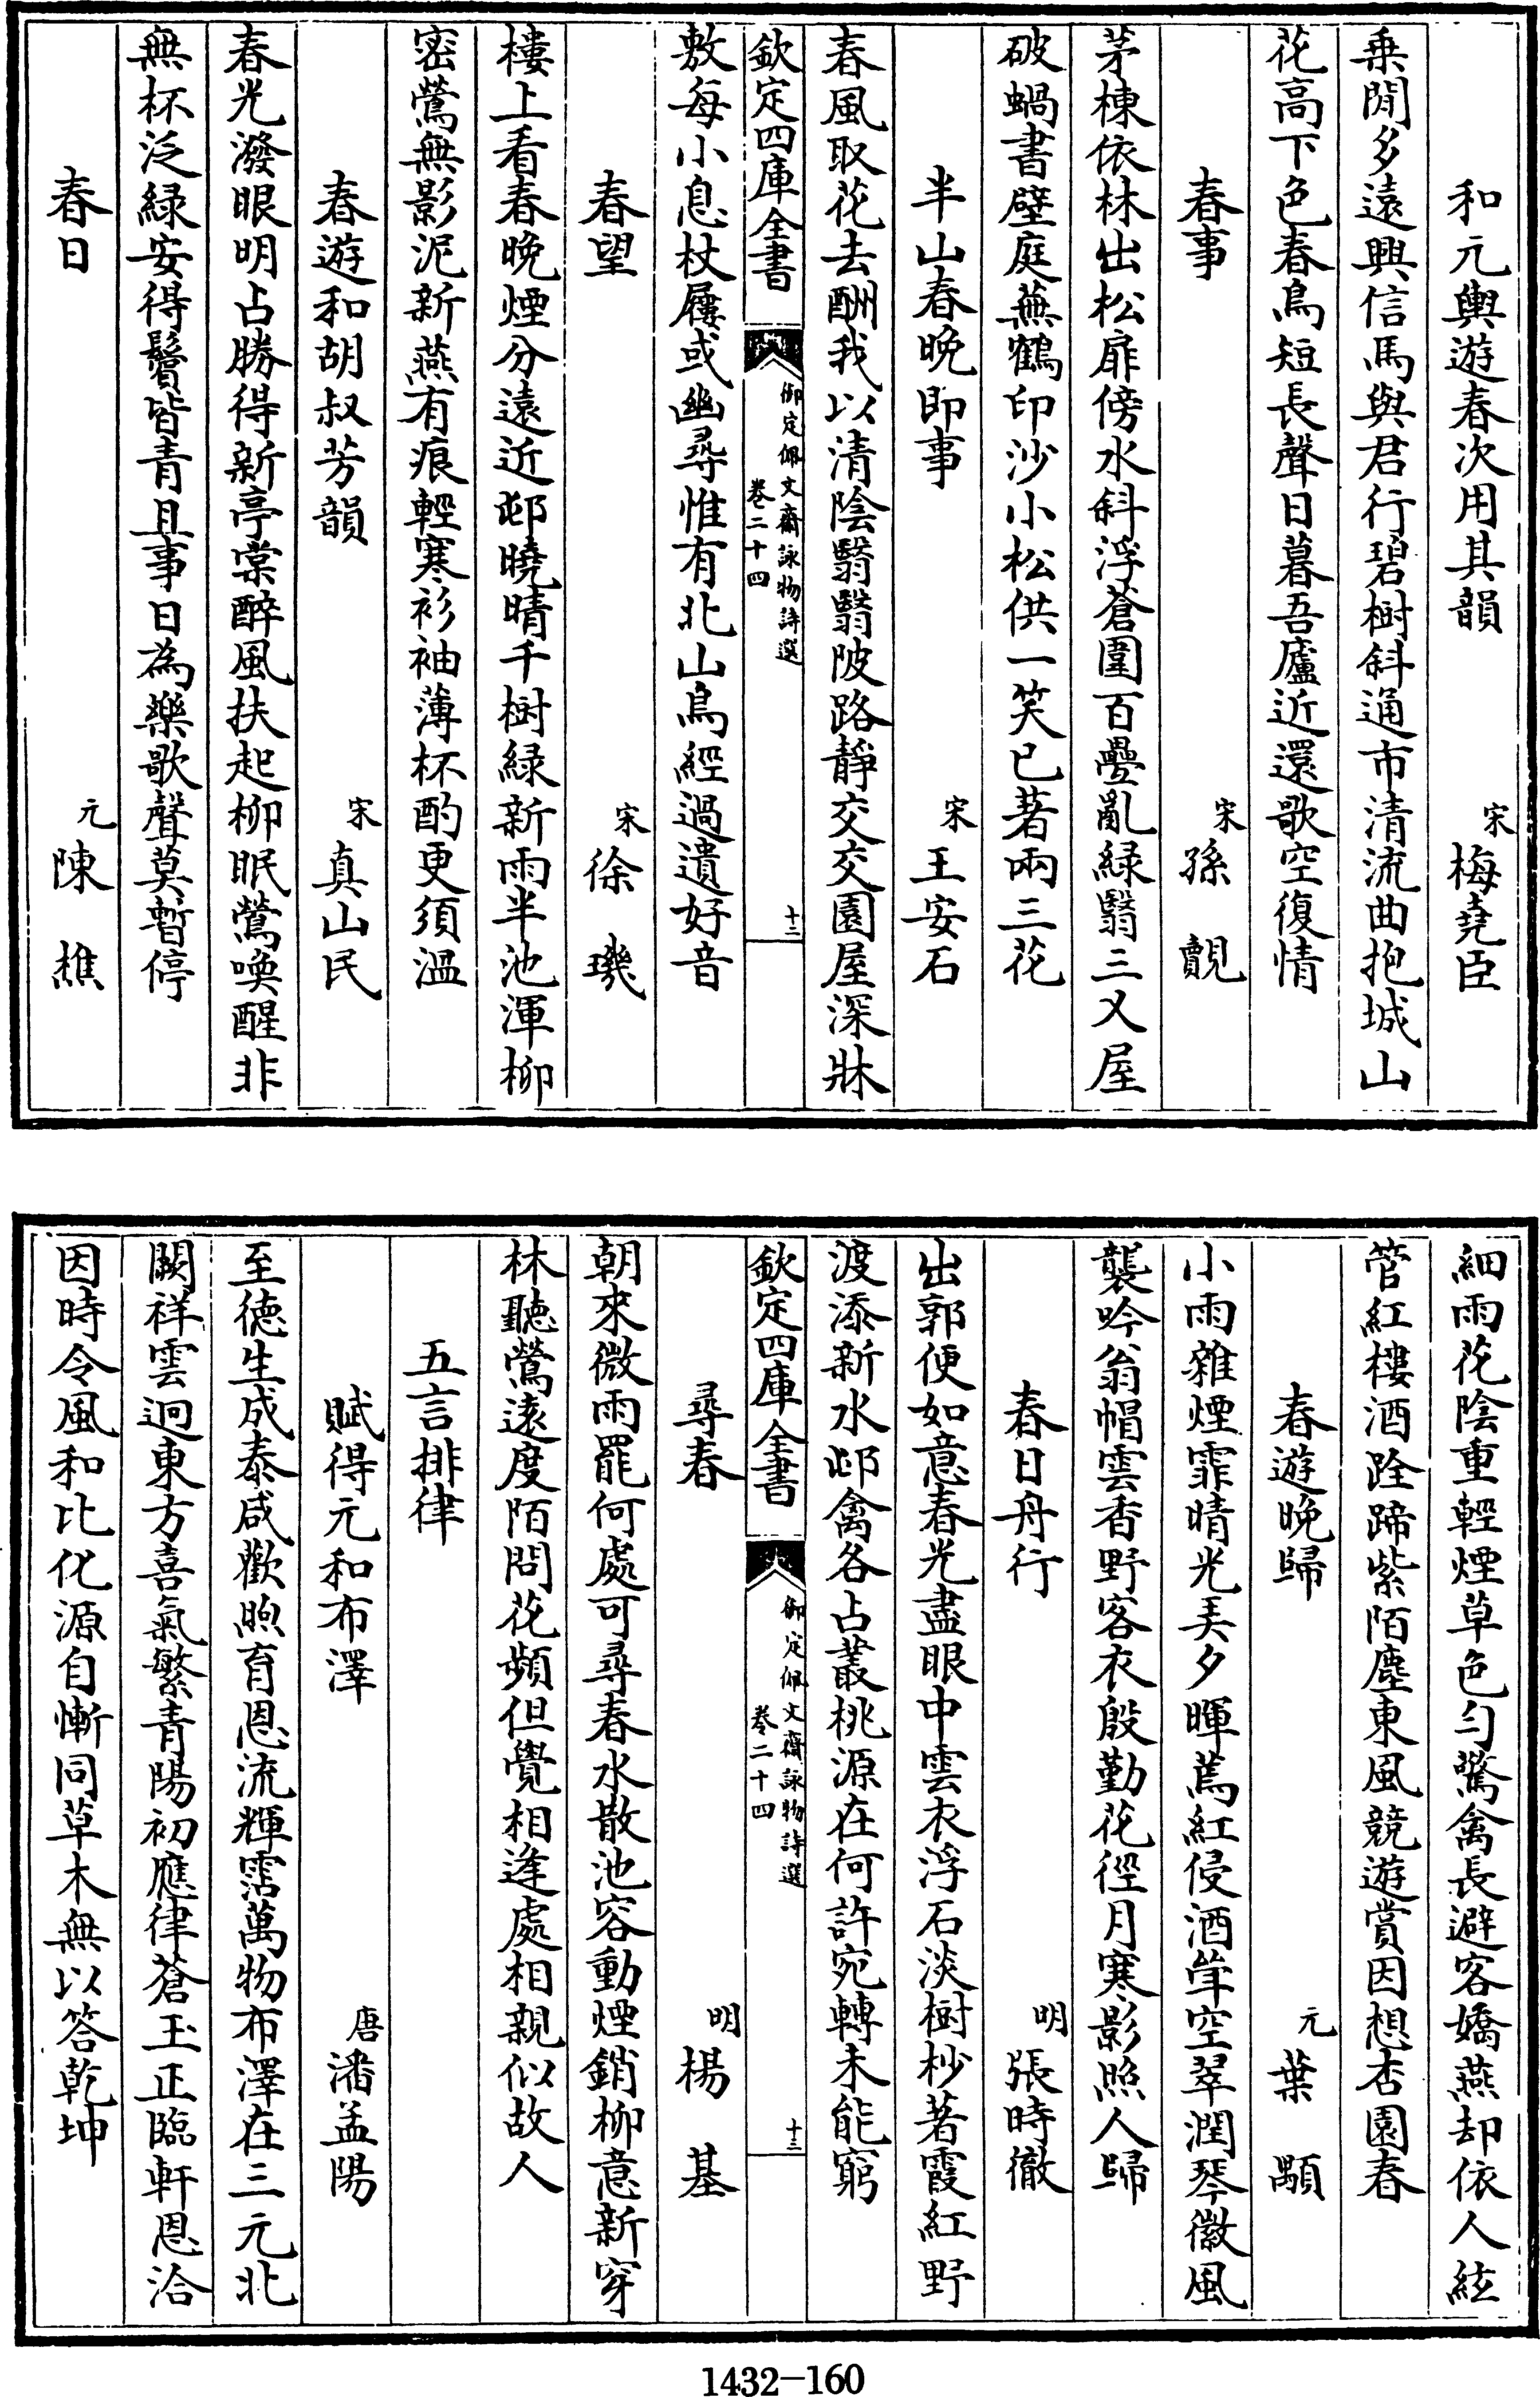 和元輿遊春次用其韻 宋 梅堯臣
乗閒多遠興信馬與君行碧樹斜通市清流曲抱城山
花高下色春鳥短長聲日暮吾廬近還歌空復情
春事 宋 孫覿
茅棟依林出松扉傍水斜浮蒼圍百疊亂緑翳三义屋
破蝸書壁庭蕪鶴印沙小松供一笑已著兩三花
半山春晚即事 宋 王安石
春風取花去酬我以清陰翳翳陂路靜交交園屋深牀
欽定四庫全書 御定佩文齋詠物詩選 卷二十四 十二
敷每小息杖屨或幽尋惟有北山鳥經過遺好音
春望 宋 徐璣
樓上看春晚煙分遠近邨曉晴千樹緑新雨半池渾柳
密鶯無影泥新燕有痕輕寒衫袖薄杯酌更須溫
春遊和胡叔芳韻 宋 真山民
春光潑眼明占勝得新亭棠醉風扶起柳眠鶯喚醒非
無杯泛緑安得鬢皆青且事日為樂歌聲莫暫停
春日 元 陳樵
細雨花陰重輕煙草色勻驚禽長避客嬌燕却依人絃
管紅樓酒踏蹄紫陌塵東風競遊賞因想杏園春
春遊晚歸 元 葉顒
小雨雜煙霏晴光美夕暉蔫紅侵酒聳空翠潤琴徽風
襲吟翁帽雲香野客衣殷勤花徑月寒影照人歸
春日舟行 明 張時徹
出郭便如意春光盡眼中雲衣浮石淡樹杪著霞紅野
渡添新水邨禽各占叢桃源在何許宛轉未能窮
欽定四庫全書 御定佩文齋詠物詩選 卷二十四 十三
尋春 明 楊基
朝來微雨罷何處可尋春水散池容動煙銷柳意新穿
林聽鶯遠度陌問花頻但覺相逢處相親似故人
五言排律
賦得元和布澤 唐 潘孟陽
至德生成泰咸歡煦育恩流輝霑萬物布澤在三元北
闕祥雲迥東方喜氣繁青陽初應律蒼玉正臨軒恩洽
因時令風和比化源自慚同草木無以答乾坤
1432-160